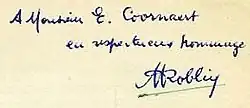 A Monsieur E. Coornaert
en respectueux hommage
MRoblin